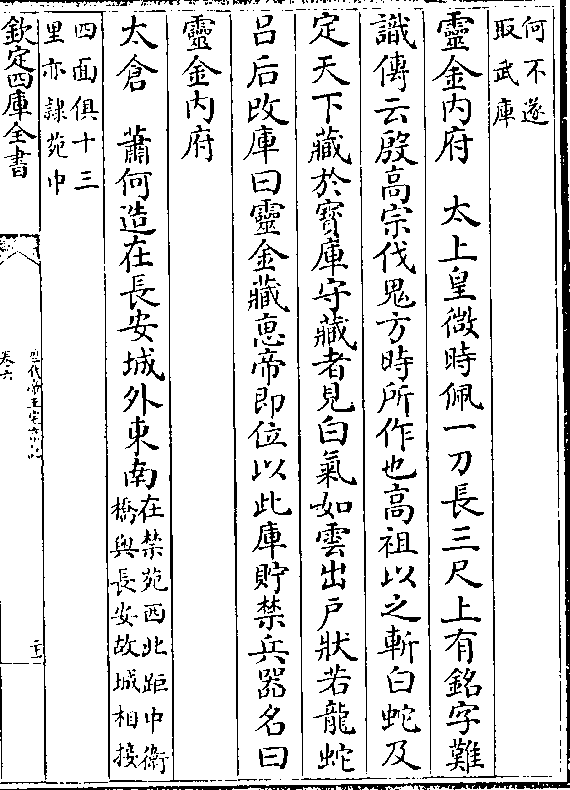 何不遂
取武庫
靈金内府　太上皇微時佩一刀長三尺上有銘字難
識傳云殷高宗伐鬼方時所作也高祖以之斬白蛇及
定天下藏於寳庫守藏者見白氣如雲出戶狀若龍蛇
吕后改庫曰靈金藏惠帝即位以此庫貯禁兵器名曰
靈金内府
太倉　蕭何造在長安城外東南
在禁苑西北距中衛
橋與長安故城相接
四面俱十三
里亦隸苑中
欽定四庫全書
歷代帝王宅京記
卷六